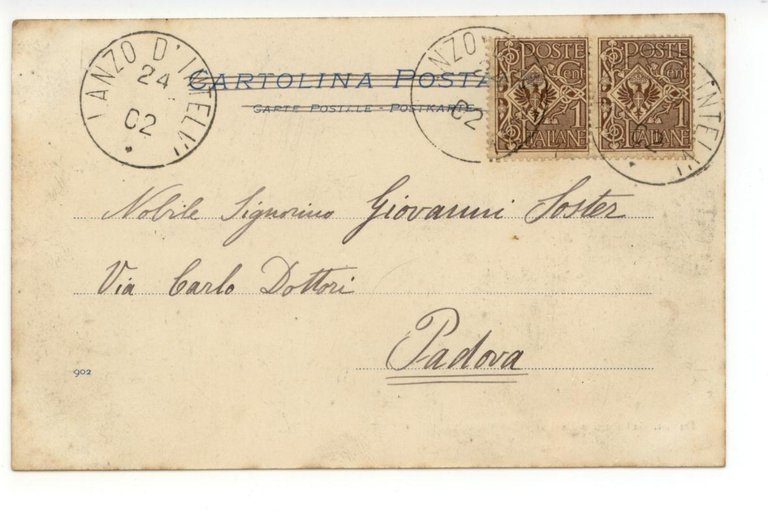 LANZO D'INTELVI
24
02
CARTOLINA POSTA
CARTE POSTALE - POSTKARTE
POSTE
Cent
1
ITALIANE
POSTE
Cent
1
ITALIANE
Nobile Signorino Giovanni Soster
Via Carlo Dottori
Padova
902